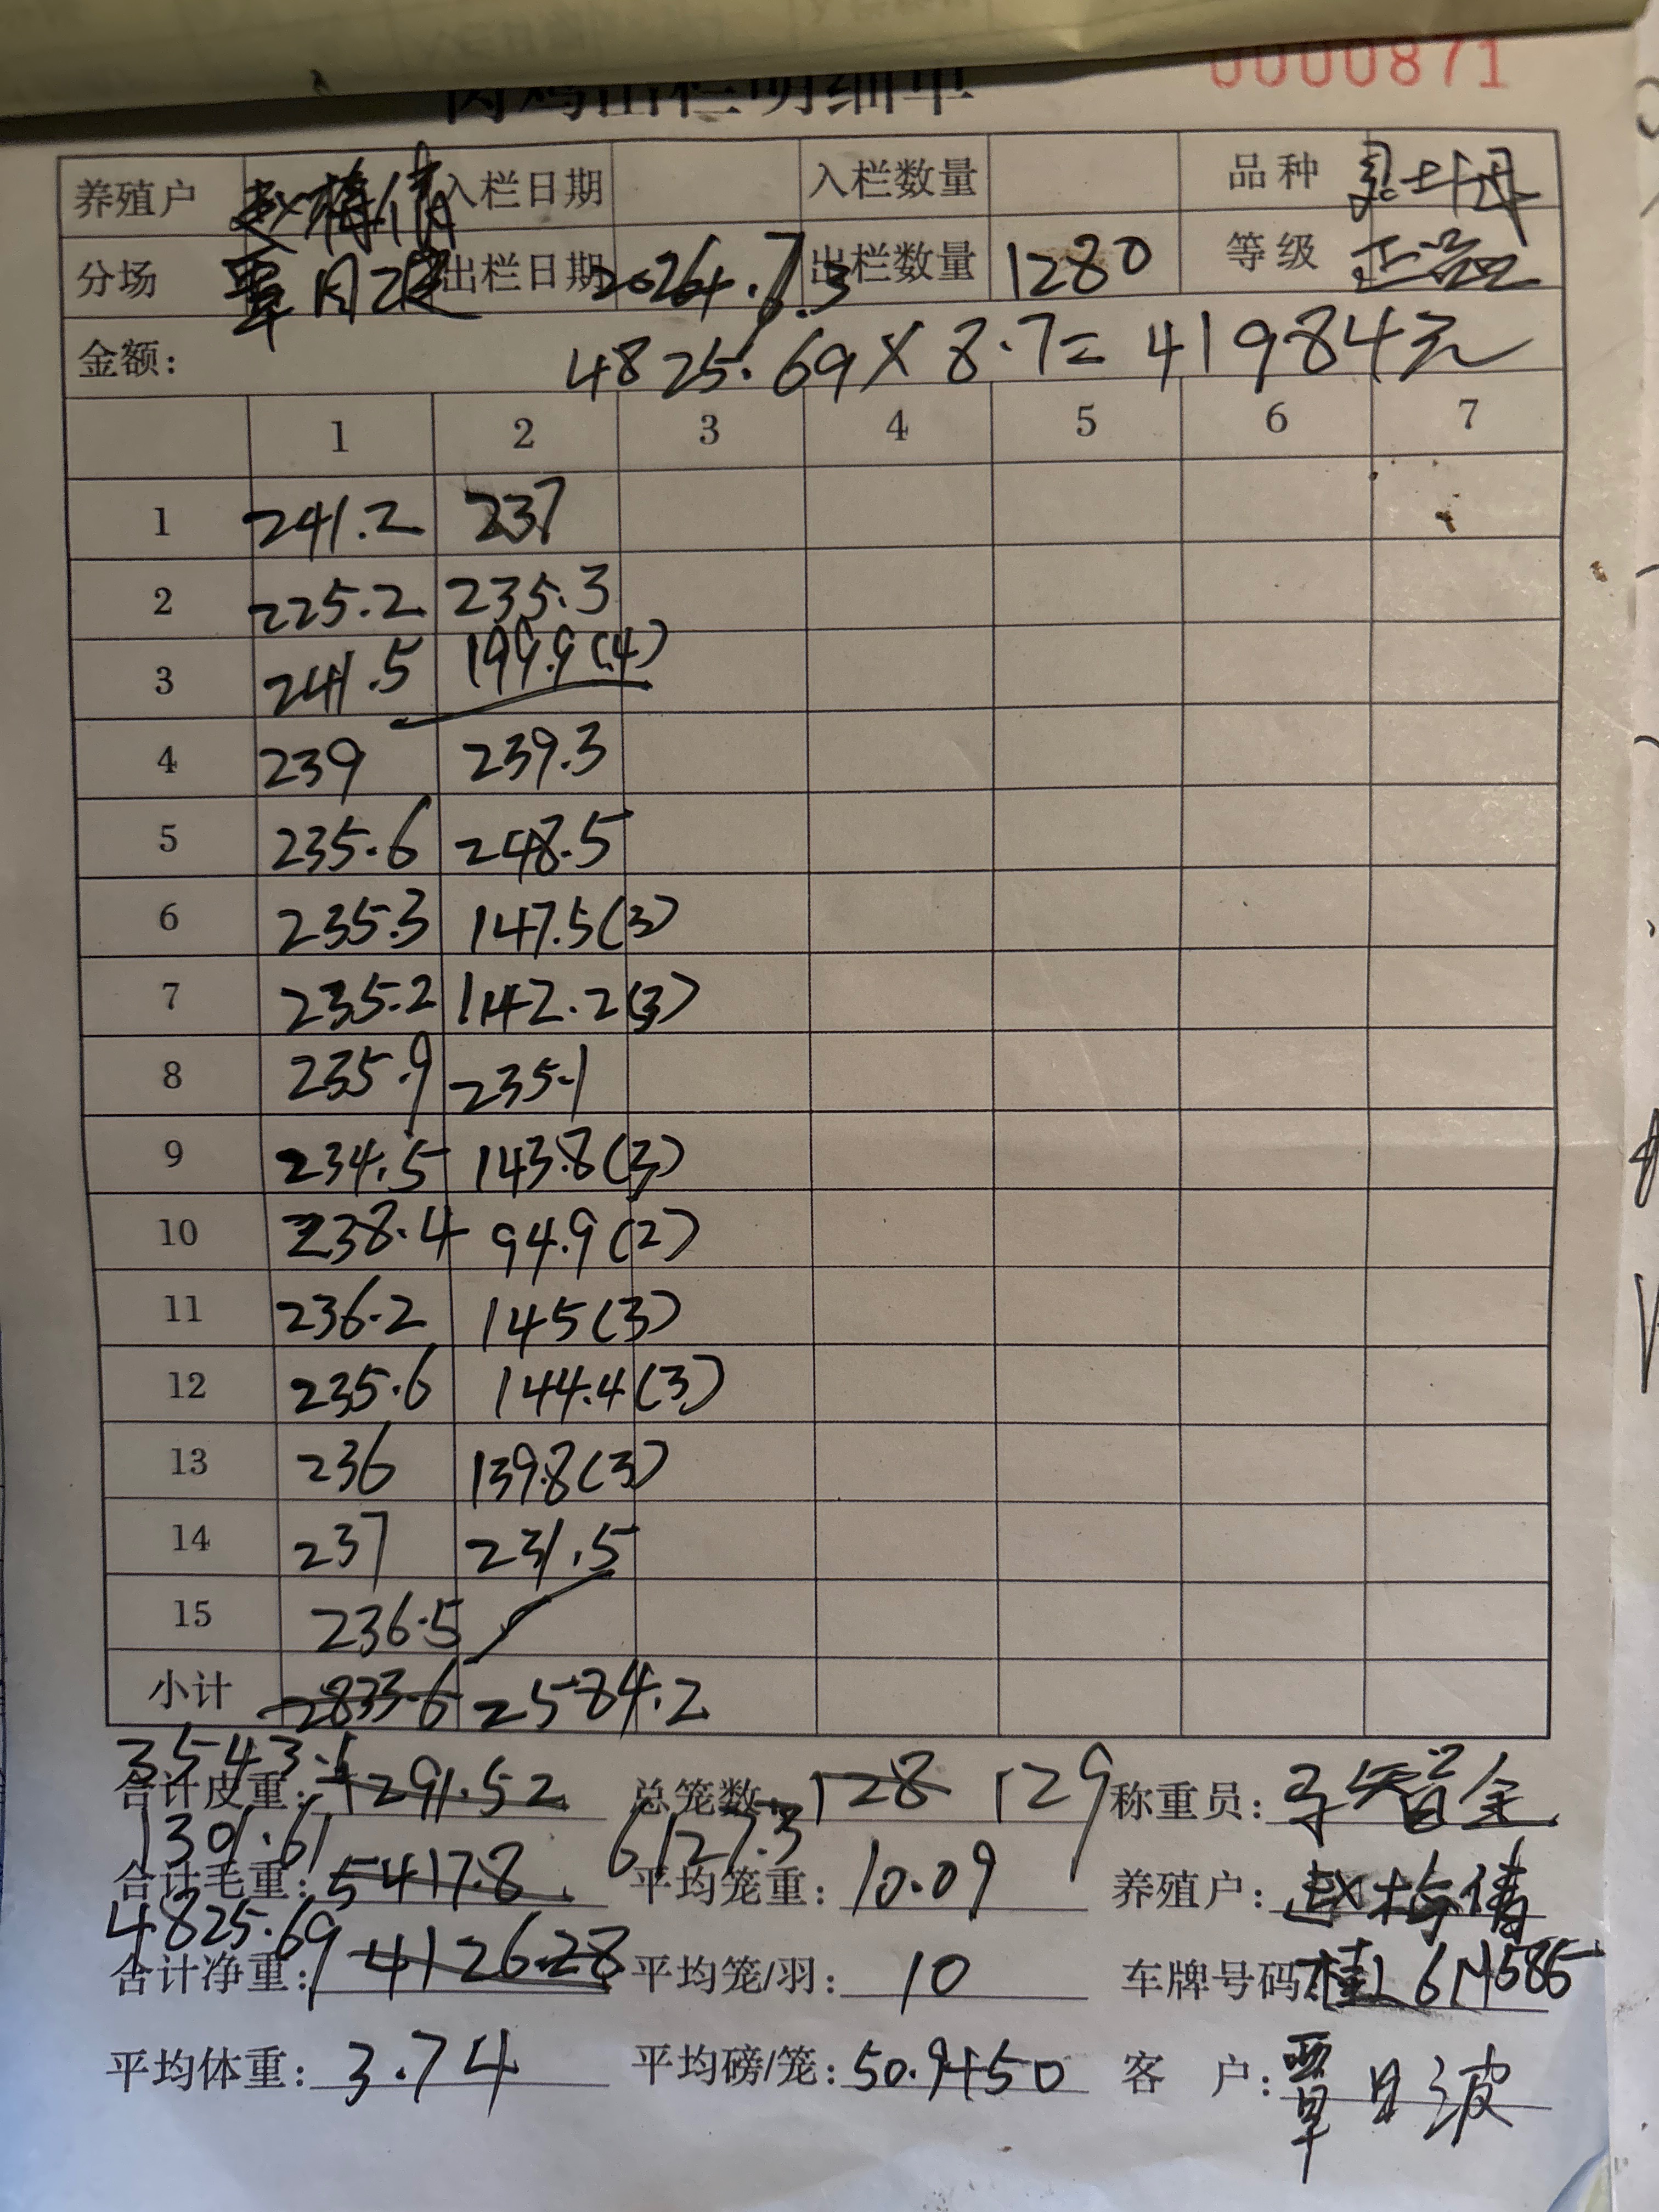 肉鸡出栏明细单 0000871
养殖户 赵梅倩 入栏日期 入栏数量 品种
分场 覃月波 出栏日期 2024.7.3 出栏数量 1280 等级 正品
金额: 4825.69×8.7=41984元
1 2 3 4 5 6 7
1 241.2 237
2 225.2 235.3
3 241.5 199.9(4)
4 239 239.3
5 235.6 248.5
6 235.3 147.5(3)
7 235.2 142.2(3)
8 235.9 235.1
9 234.5 143.8(3)
10 238.4 94.9(2)
11 236.2 145(3)
12 235.6 144.4(3)
13 236 139.8(3)
14 237 231.5
15 236.5
小计 2833.6 2584.2
3543.1
合计皮重: 1291.52 总笼数: 128 129 称重员:
1301.61 6127.3
合计毛重: 5417.8 平均笼重: 10.09 养殖户: 赵梅倩
4825.69
合计净重: 4126.28 平均笼/羽: 10 车牌号码: 桂L6M585
平均体重: 3.74 平均磅/笼: 50.9450 客 户: 覃月波